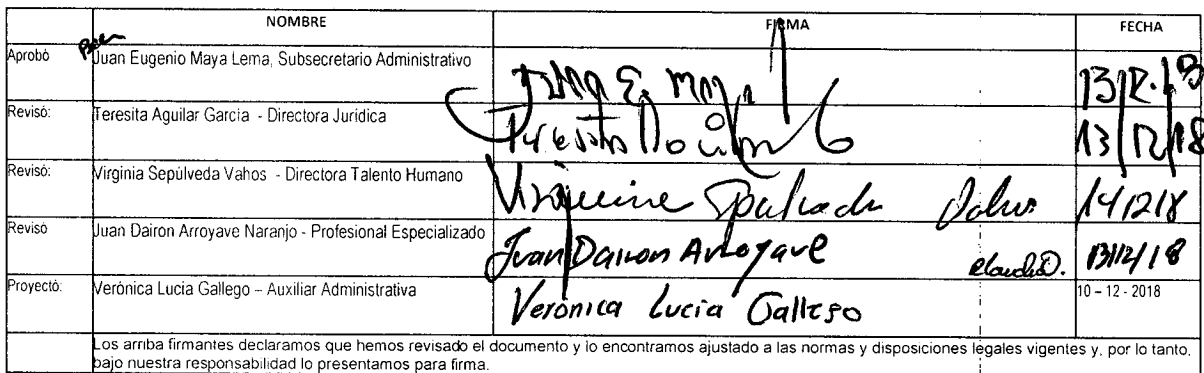 NOMBRE FIRMA FECHA
Aprobó Juan Eugenio Maya Lema, Subsecretario Administrativo 13/12/18
Revisó: Teresita Aguilar García - Directora Jurídica 13/12/18
Revisó: Virginia Sepúlveda Vahos - Directora Talento Humano 14/12/18
Revisó Juan Dairon Arroyave Naranjo - Profesional Especializado Juan Dairon Arroyave Claudia O. 13/12/18
Proyectó: Verónica Lucia Gallego – Auxiliar Administrativa Verónica Lucia Gallego 10 – 12 - 2018
Los arriba firmantes declaramos que hemos revisado el documento y lo encontramos ajustado a las normas y disposiciones legales vigentes y, por lo tanto,
bajo nuestra responsabilidad lo presentamos para firma.